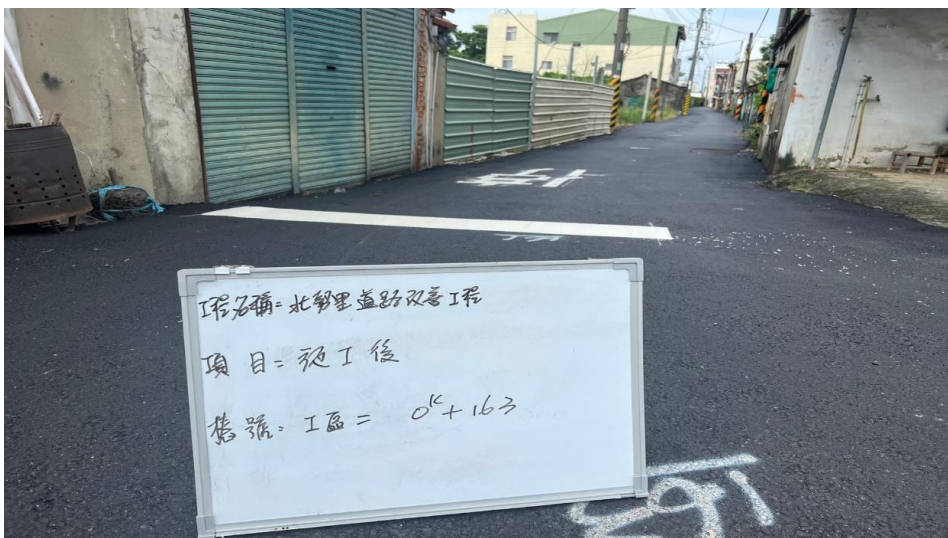 工程名稱=北勢里道路改善工程
項目=施工後
樁號:工區= 0K+163